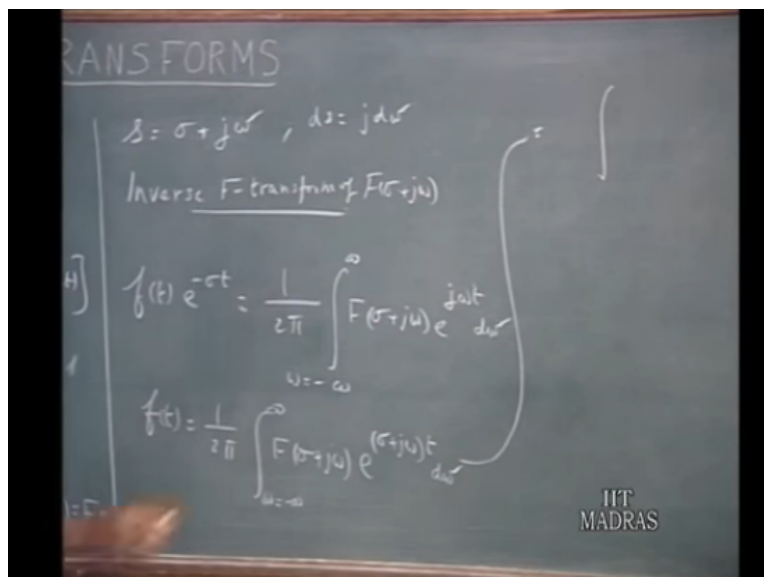 RANSFORMS
s = σ + jω , ds = jdω
Inverse F-transform of F(σ+jω)
f(t) e^{-σt} = 1/2π ∫_{ω=-∞}^{∞} F(σ+jω) e^{jωt} dω
f(t) = 1/2π ∫_{ω=-∞}^{∞} F(σ+jω) e^{(σ+jω)t} dω
= ∫
IIT
MADRAS